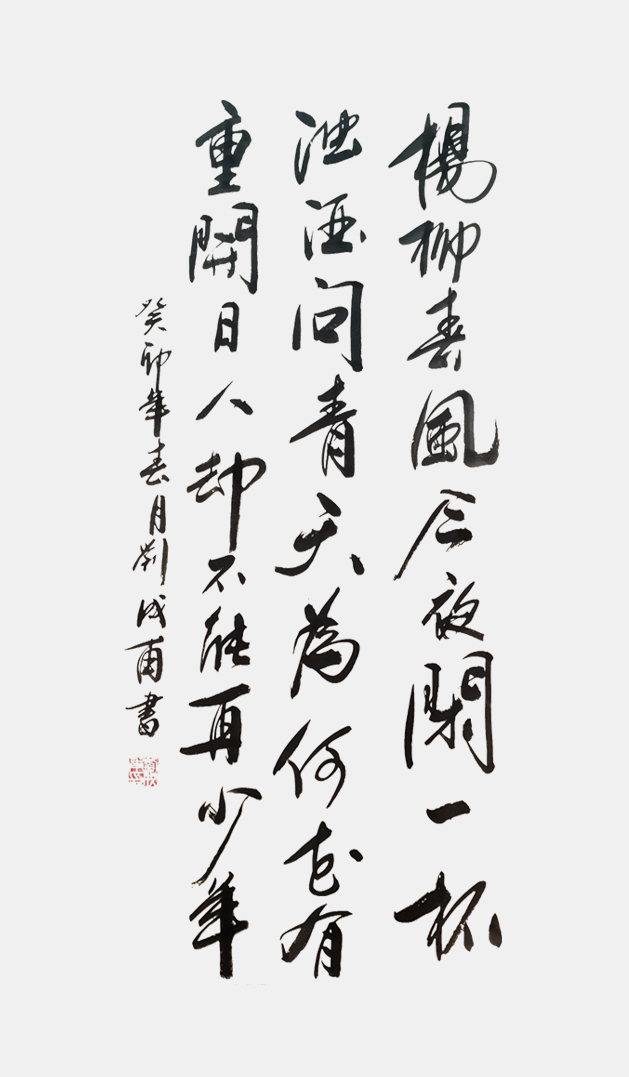 楊柳春風今夜閑一杯
浊酒问青天為何花有
重開日人却不能再少年
癸卯年春月劉成甫書